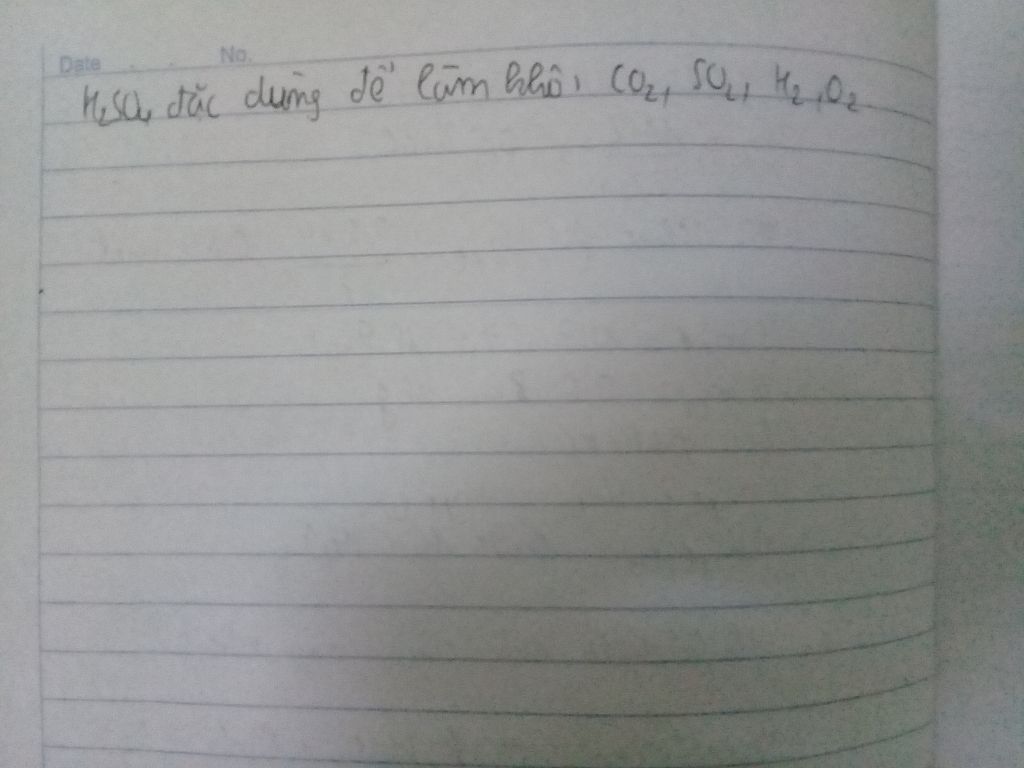 Date . . No.
H₂SO₄ đặc dùng để làm khô: CO₂, SO₂, H₂, O₂